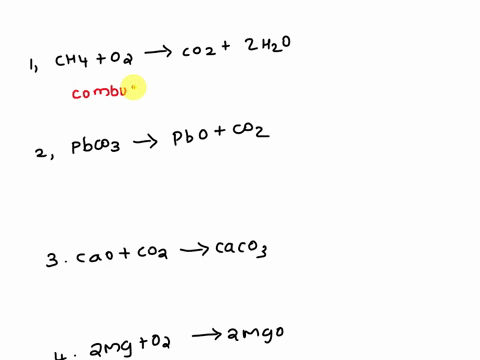 1, CH4 + O2 → CO2 + 2H2O
combu
2, PbCO3 → PbO + CO2
3. CaO + CO2 → CaCO3
4. 2Mg + O2 → 2MgO